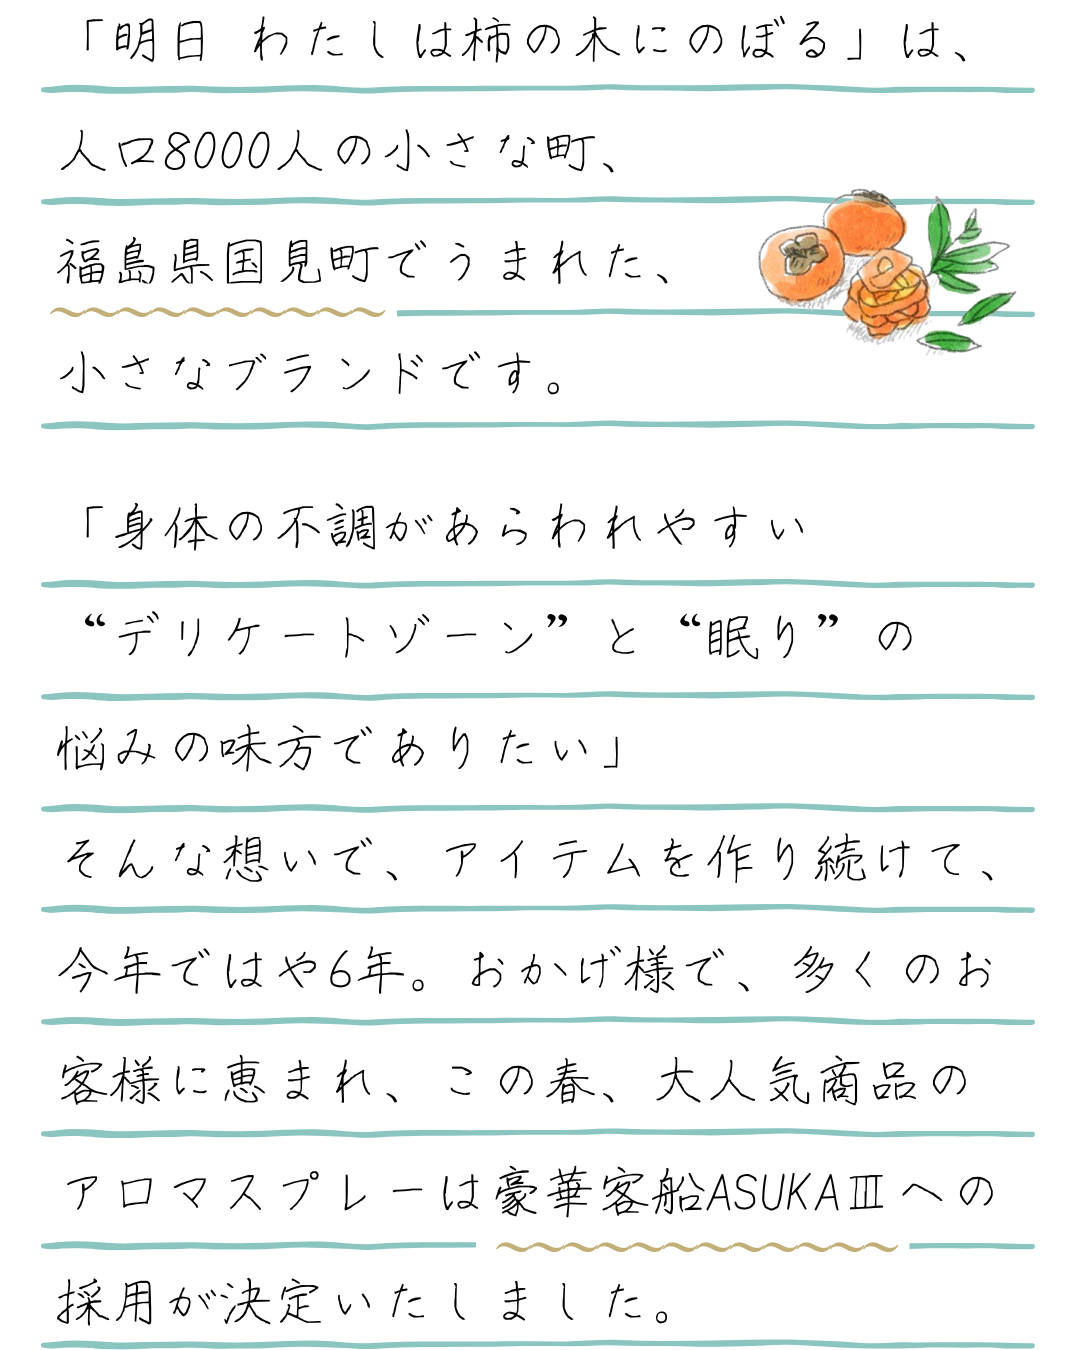 「明日 わたしは柿の木にのぼる」は、
人口8000人の小さな町、
福島県国見町でうまれた、
小さなブランドです。
「身体の不調があらわれやすい
“デリケートゾーン”と“眠り”の
悩みの味方でありたい」
そんな想いで、アイテムを作り続けて、
今年ではや6年。おかげ様で、多くのお
客様に恵まれ、この春、大人気商品の
アロマスプレーは豪華客船ASUKAⅢへの
採用が決定いたしました。